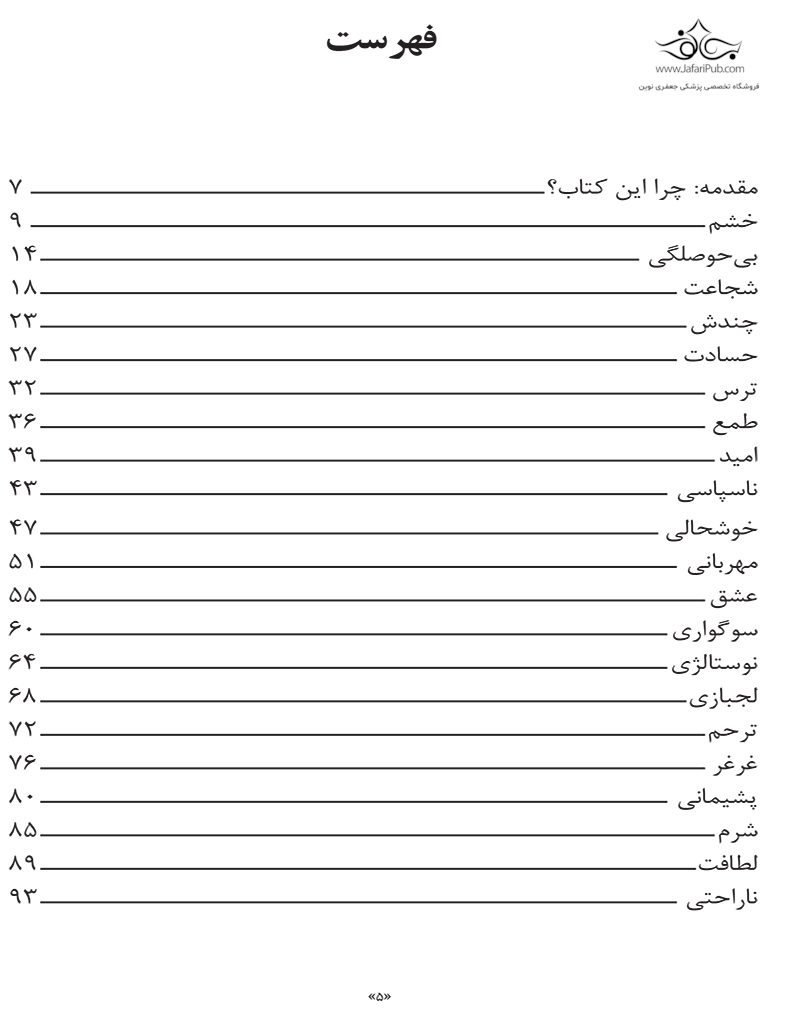 www.JafariPub.com
فروشگاه تخصصی پزشکی جعفری نوین
فهرست
مقدمه: چرا این کتاب؟ ۷
خشم ۹
بی‌حوصلگی ۱۴
شجاعت ۱۸
چندش ۲۳
حسادت ۲۷
ترس ۳۲
طمع ۳۶
امید ۳۹
ناسپاسی ۴۳
خوشحالی ۴۷
مهربانی ۵۱
عشق ۵۵
سوگواری ۶۰
نوستالژی ۶۴
لجبازی ۶۸
ترحم ۷۲
غرغر ۷۶
پشیمانی ۸۰
شرم ۸۵
لطافت ۸۹
ناراحتی ۹۳
«۵»